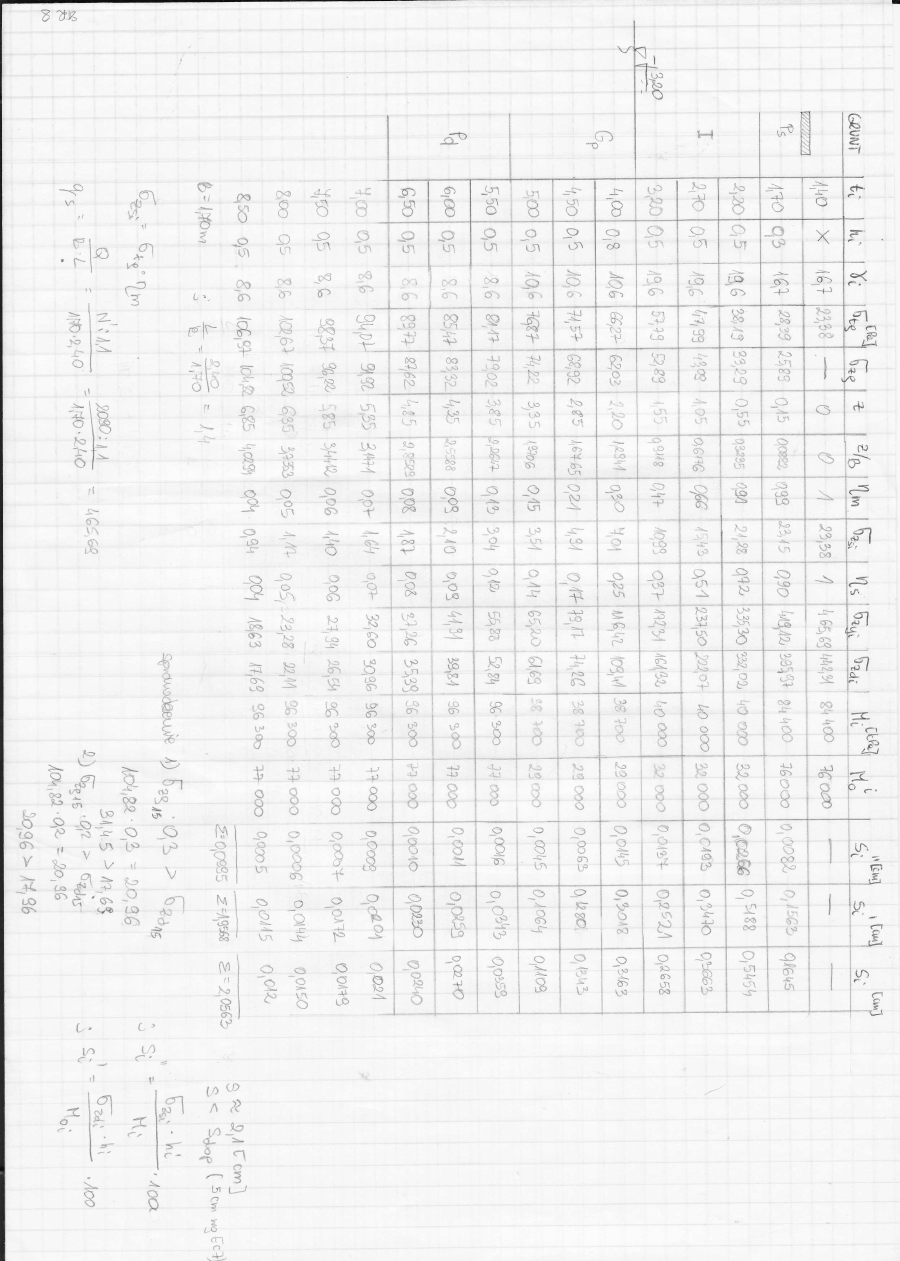 GRUNT ti hi γi σzg [kPa] σ̄zg z z/B ηm σzsi ηs σzqi σzdi Mi [kPa] Moi si'' [cm] si' [cm] si [cm]
1,40 x 16,7 23,38 — 0 0 1 23,38 1 465,69 442,31 84 400 76 000 — — —
Ps 1,70 0,3 16,7 28,39 25,89 0,15 0,0882 0,99 23,15 0,90 419,12 395,97 84 400 76 000 0,0082 0,1563 0,1645
2,20 0,5 19,6 38,19 33,29 0,55 0,3235 0,91 21,28 0,72 335,30 332,02 40 000 32 000 0,0266 0,5188 0,5454
I 2,70 0,5 19,6 47,99 43,09 1,05 0,6176 0,66 15,43 0,51 237,50 222,07 40 000 32 000 0,0193 0,3470 0,3663
3,20 0,5 19,6 57,79 52,89 1,55 0,9118 0,47 10,99 0,37 172,31 161,32 40 000 32 000 0,0137 0,2521 0,2658
-13,20
4,00 0,8 10,6 66,27 62,03 2,20 1,2941 0,30 7,01 0,25 116,42 109,41 38 700 29 000 0,0145 0,3018 0,3163
Gp 4,50 0,5 10,6 71,57 68,92 2,85 1,6765 0,21 4,91 0,17 79,17 74,26 38 700 29 000 0,0063 0,1280 0,1343
5,00 0,5 10,6 76,87 74,22 3,35 1,9706 0,15 3,51 0,14 65,20 61,69 38 700 29 000 0,0045 0,1064 0,1109
5,50 0,5 8,6 81,17 79,02 3,85 2,2647 0,13 3,04 0,12 55,88 52,84 96 300 77 000 0,0016 0,0343 0,0359
Pd 6,00 0,5 8,6 85,47 83,32 4,35 2,5588 0,09 2,10 0,09 41,91 39,81 96 300 77 000 0,0011 0,0259 0,0270
6,50 0,5 8,6 89,77 87,62 4,85 2,8529 0,08 1,87 0,08 37,26 35,39 96 300 77 000 0,0010 0,0230 0,0240
7,00 0,5 8,6 94,07 91,92 5,35 3,1471 0,07 1,64 0,07 32,60 30,96 96 300 77 000 0,0009 0,0201 0,021
7,50 0,5 8,6 98,37 96,22 5,85 3,4412 0,06 1,40 0,06 27,94 26,54 96 300 77 000 0,0007 0,0172 0,0179
8,00 0,5 8,6 102,67 100,52 6,35 3,7353 0,05 1,17 0,05 23,28 22,11 96 300 77 000 0,0006 0,0144 0,0150
8,50 0,5 8,6 106,97 104,82 6,85 4,0294 0,04 0,94 0,04 18,63 17,69 96 300 77 000 0,0005 0,0115 0,012
Σ=0,0985 Σ=1,9568 Σ=2,0563
S ≈ 2,1[cm]
S < Sdop (5cm wg EC7)
B=1,70m ; L/B = 2,40/1,70 = 1,4
σzsi = σzg · ηm
qs = Q/B·L = N·1,1/1,70·2,40 = /1,70·2,40 = 465,69
Sprawdzenie 1) σzg15 · 0,3 > σzd15
104,82 · 0,3 = 20,96
31,45 > 17,69
2) σzg15 · 0,2 > σzd15
104,82 · 0,2 = 20,96
20,96 > 17,96
; si'' = σzsi · hi / Mi · 100
; si' = σzdi · hi / Moi · 100
STR 8